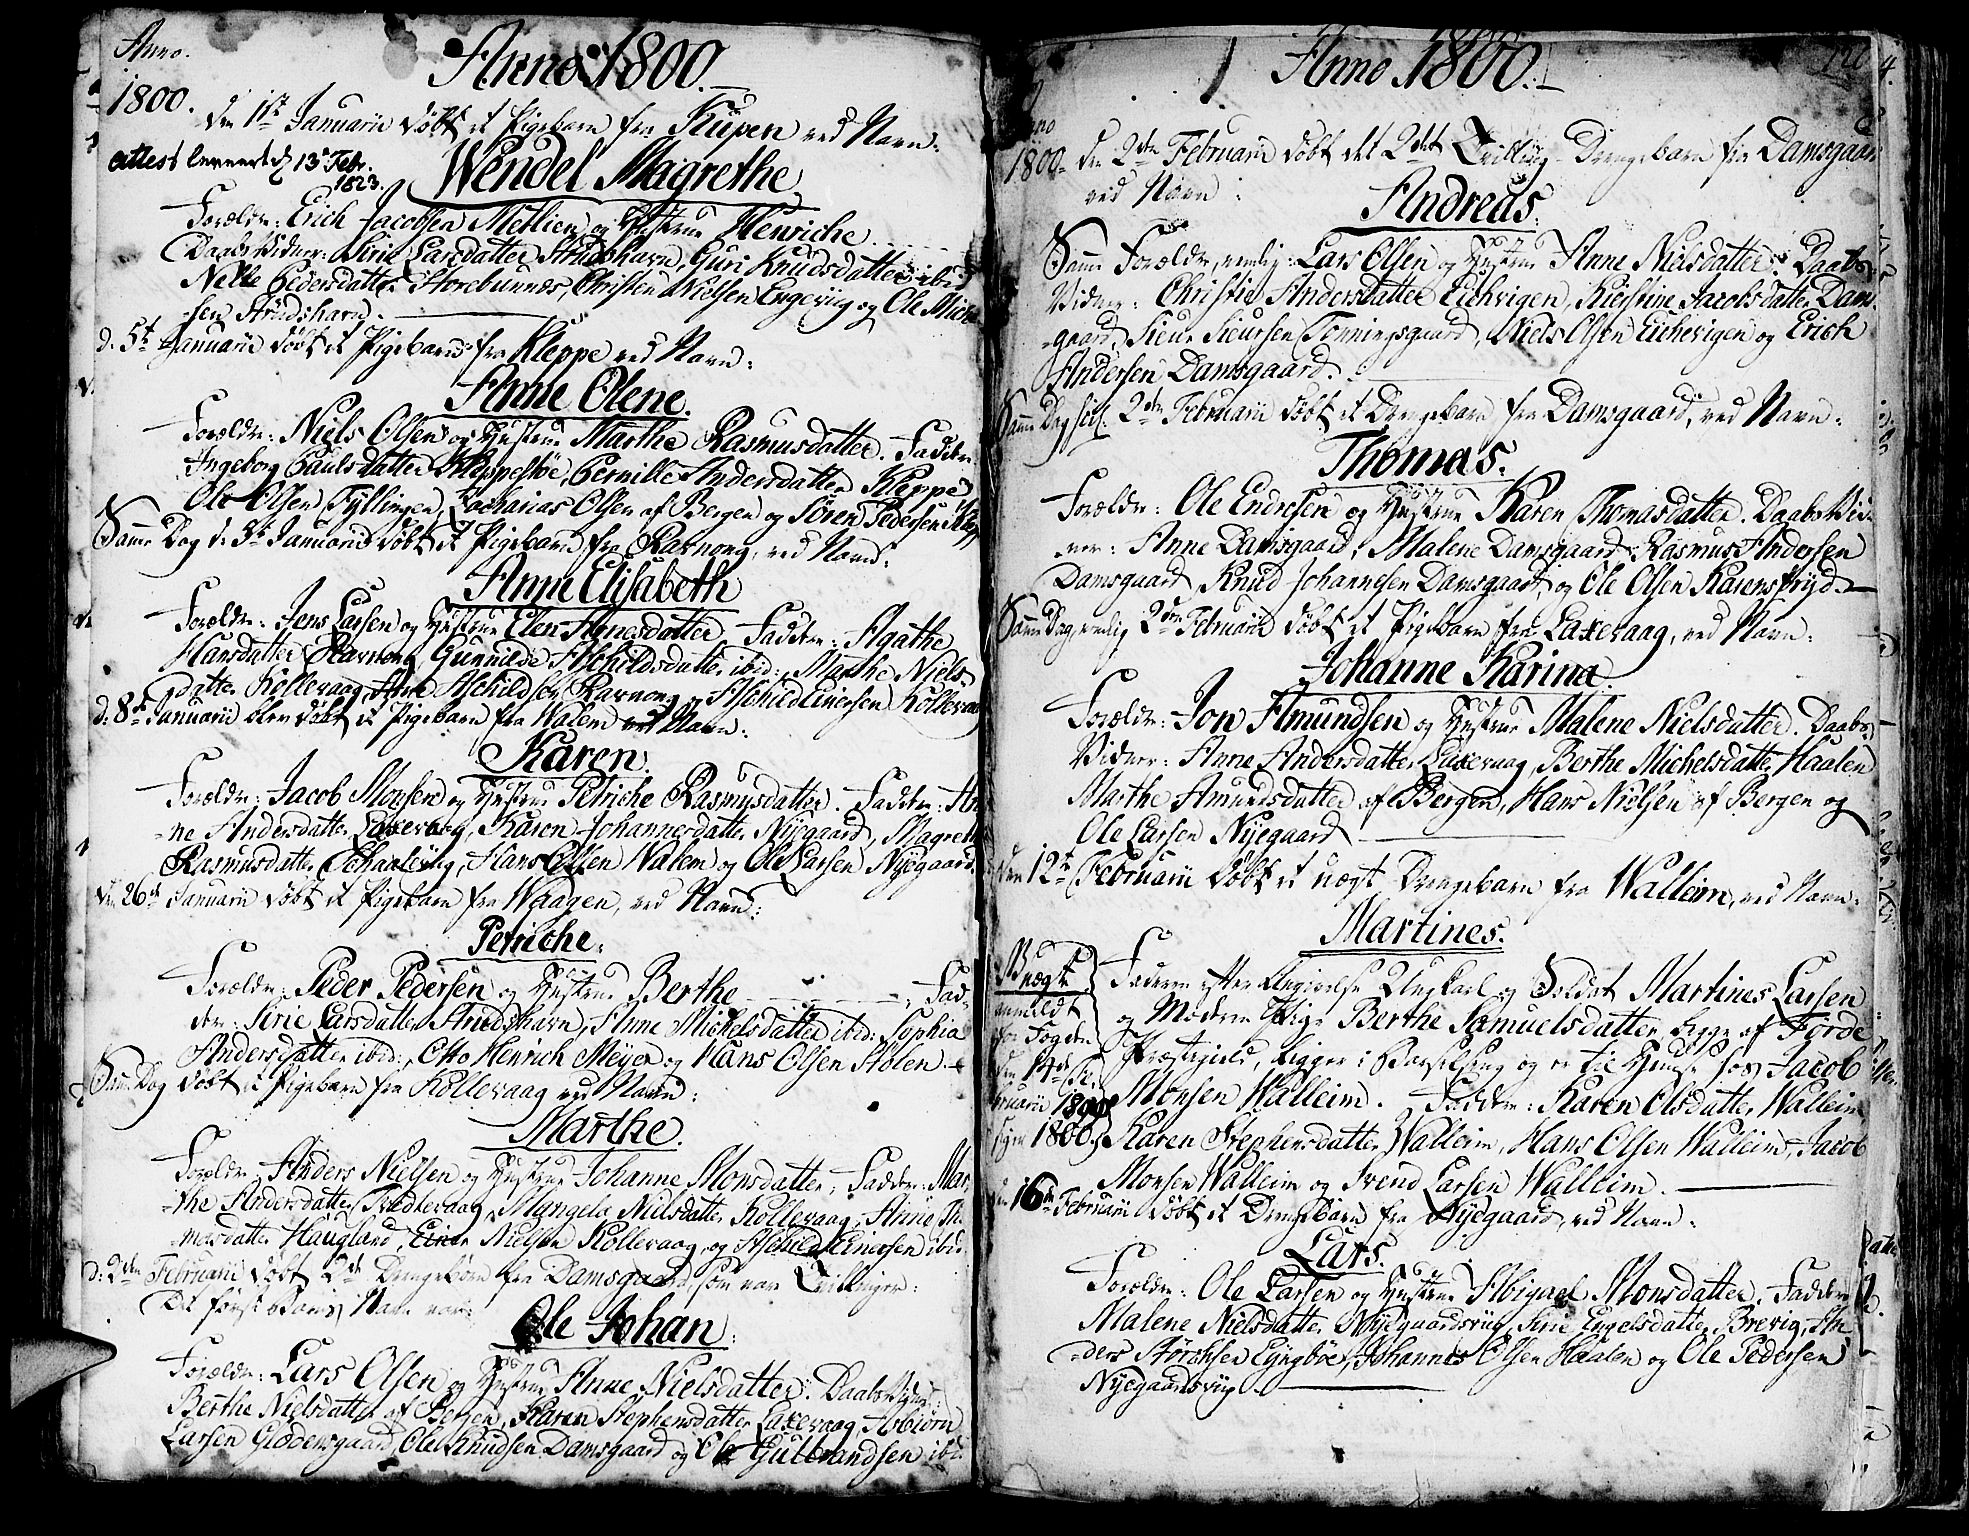 Anno.
1800.
Anno 1800.
den 1ste Januarii døbt et Pigebarn fra Kupen ved Navn:
attest leevert d 13de Febr.
1823.
Wendel Magrethe
Forældre: Erich Jacobsen Metlien og Hustrue Henriche
Daabs Vidner: Sirie Larsdatter Strudshavn, Guri Knudsdatter ibid
Nelle Pedersdatter Storebunnes, Christen Nielsen Engeviig og Ole Mich
sen Strudshavn.
d: 5te Januarii døbt et Pigebarn fra Kleppe ved Navn:
Anne Olene.
Forældre: Niels Olsen og Hustrue Marthe Rasmusdatter. Faddere
Ingeborg Paulsdatter Kleppestøe, Pernille Andersdatter Kleppe,
Ole Olsen Tyllingen, Zacharias Olsen af Bergen og Søren Pedersen Klepp
Samme Dag d: 5te Januarii døbt et Pigebarn fra Ravnong, ved Navn:
Anne Elisabeth
Forældre: Jens Larsen og Hustrue Elen Agnesdatter. Faddere: Agathe
Hansdatter Ravnong, Gunnilde Aschildsdatter ibid: Marthe Niels-
datter Kollevaag, Arne Aschildsen Ravnong og Aschild Einersen Kollevaag
d: 8de Januarii blev døbt et Pigebarn fra Walem ved Navn:
Karen
Forældre: Jacob Monsen og Hustrue Petriche Rasmusdatter. Faddere: An-
ne Andersdatter Laxevaag, Karen Johannesdatter Nyegaard, Magrethe
Rasmusdatter Schaaleviig, Hans Olsen Walem og Ole Larsen Nyegaard.
den 26de Januarii døbt et Pigebarn fra Waagen, ved Navn:
Petriche.
Forældre: Peder Pedersen og Hustrue Berthe ; Fad-
dere: Sirie Larsdatter Strudshavn, Anne Michelsdatter ibid: Sophia
Andersdatter ibid:, Otto Henrich Meyer og Hans Olsen Holen.
Samme Dag døbt et Pigebarn fra Kollevaag ved Navn:
Marthe.
Forældre: Anders Nielsen og Hustrue Johanne Monsdatter; Faddere: Mar-
the Andersdatter Trædlevaag, Mangela Nielsdatter Kollevaag, Anne Tho-
masdatter Haugland, Einer Nielsen Kollevaag, og Aschild Einersen ibid:
d: 2den Februarii døbt 2de Drengebørn fra Damsgaard, som var Tvillinger:
Det første Barns Navn var:
Ole Johan.
Forældre: Lars Olsen og Hustrue Anne Nielsdatter. Daabs Vidner:
Berthe Nielsdatter af Bergen, Karen Stephensdatter Laxevaag, Asbiørn
Larsen Gioddersgaard, Ole Knudsen Damsgaard og Ole Gulbrandsen ibid:
Anno 1800.
Anno
1800.
den 2den Februarii døbt det 2det Tvilling-Drengebarn fra Damsgaard
ved Navn:
Andreas.
Samme Forældre, nemlig: Lars Olsen og Hustrue Anne Nielsdatter. Daabs-
Vidner: Christie Andersdatter Eichevigen, Kierstine Jacobsdatter Dam-
gaard, Sieur Sieursen Tonningsgaard, Niels Olsen Eichevigen og Erich
Andersen Damsgaard.
Samme Dag 2den Februarii døbt et Drengebarn fra Damsgaard, ved Navn:
Thomas.
Forældre: Ole Endresen og Hustrue Karen Thomasdatter. Daabs Vid-
ner: Anne Damsgaard, Malene Damsgaard, Rasmus Andersen
Damsgaard, Knud Johannesen Damsgaard og Ole Olsen Karenstryd.
Samme Dag, nemlig 2den Februarii døbt et Pigebarn fra Laxevaag, ved Navn:
Johanne Karina.
Forældre: Jon Amundsen og Hustrue Malene Nielsdatter. Daabs
Vidner: Anne Andersdatter Laxevaag, Berthe Michelsdatter Haalen
Marthe Amundsdatter af Bergen, Hans Nielsen af Bergen og
Ole Larsen Nyegaard
den 12te Februarii døbt et uægt Drengebarn fra Walleim, ved Navn:
Martines.
Uægt
anmeldt
for Fogden
den 14de Fe-
bruarii
1800.
Faderen efter Angivelse Ungkarl og Soldat Martines Larsen
og Moderen Pige Berthe Samuelsdatter, begge af Førde
Præstegield, ligger i Barselseng og er til Huuse hos Jacob
Monsen Walleim. Faddere: Karen Olsdatter Walleim
Karen Stephensdatter Walleim, Hans Olsen Walleim, Jacob
Monsen Walleim og Svend Larsen Walleim.
den 16de Februarii døbt et Drengebarn fra Nyegaard, ved Navn:
Lars.
Forældre: Ole Larsen og Hustrue Abigael Monsdatter. Faddere
Malene Nielsdatter Nyegaardsviig, Sirie Engelsdatter Brevig, An-
ders Størchsen Lyngbøe, Johannes Olsen Haalen og Ole Pedersen
Nyegaardsviig.